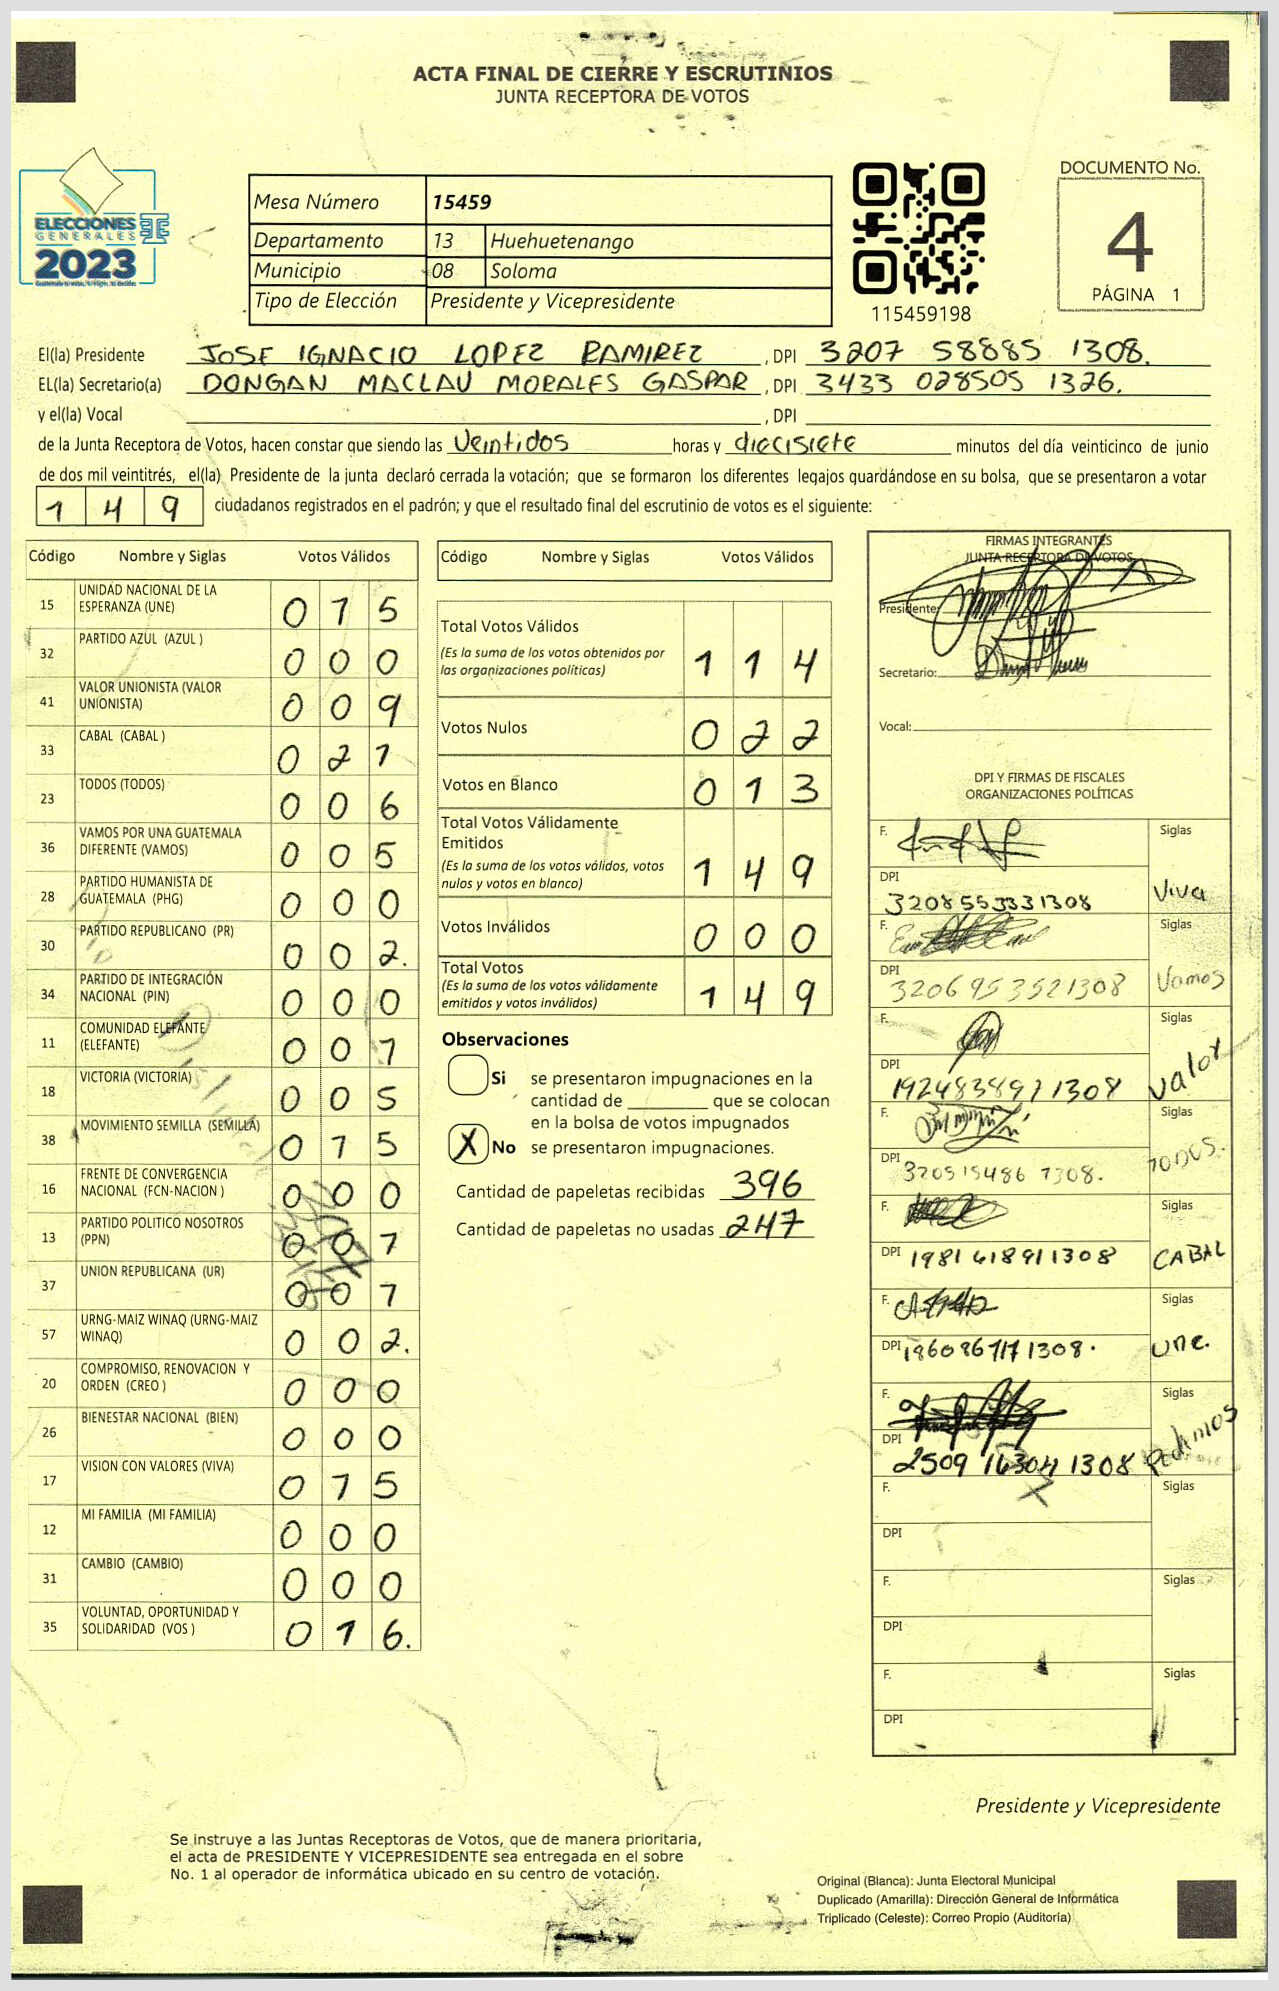 ACTA FINAL DE CIERRE Y ESCRUTINIOS
JUNTA RECEPTORA DE VOTOS
ELECCIONES
GENERALES
2023
Mesa Número 15459
Departamento 13 Huehuetenango
Municipio 08 Soloma
Tipo de Elección Presidente y Vicepresidente
115459198
DOCUMENTO No.
4
PÁGINA 1
El(la) Presidente JOSE IGNACIO LOPEZ RAMIREZ , DPI 3207 58885 1308.
EL(la) Secretario(a) DONGAN MACLAU MORALES GASPAR , DPI 3433 028505 1326.
y el(la) Vocal , DPI
de la Junta Receptora de Votos, hacen constar que siendo las Veintidos horas y diecisiete minutos del día veinticinco de junio
de dos mil veintitrés, el(la) Presidente de la junta declaró cerrada la votación; que se formaron los diferentes legajos guardándose en su bolsa, que se presentaron a votar
149 ciudadanos registrados en el padrón; y que el resultado final del escrutinio de votos es el siguiente:
Código Nombre y Siglas Votos Válidos
15 UNIDAD NACIONAL DE LA ESPERANZA (UNE) 015
32 PARTIDO AZUL (AZUL ) 000
41 VALOR UNIONISTA (VALOR UNIONISTA) 009
33 CABAL (CABAL ) 021
23 TODOS (TODOS) 006
36 VAMOS POR UNA GUATEMALA DIFERENTE (VAMOS) 005
28 PARTIDO HUMANISTA DE GUATEMALA (PHG) 000
30 PARTIDO REPUBLICANO (PR) 002.
34 PARTIDO DE INTEGRACIÓN NACIONAL (PIN) 000
11 COMUNIDAD ELEFANTE (ELEFANTE) 001
18 VICTORIA (VICTORIA) 005
38 MOVIMIENTO SEMILLA (SEMILLA) 015
16 FRENTE DE CONVERGENCIA NACIONAL (FCN-NACION ) 000
13 PARTIDO POLITICO NOSOTROS (PPN) 001
37 UNION REPUBLICANA (UR) 001
57 URNG-MAIZ WINAQ (URNG-MAIZ WINAQ) 002.
20 COMPROMISO, RENOVACION Y ORDEN (CREO ) 000
26 BIENESTAR NACIONAL (BIEN) 000
17 VISION CON VALORES (VIVA) 015
12 MI FAMILIA (MI FAMILIA) 000
31 CAMBIO (CAMBIO) 000
35 VOLUNTAD, OPORTUNIDAD Y SOLIDARIDAD (VOS ) 016.
Código Nombre y Siglas Votos Válidos
Total Votos Válidos
(Es la suma de los votos obtenidos por
las organizaciones políticas) 114
Votos Nulos 022
Votos en Blanco 013
Total Votos Válidamente
Emitidos
(Es la suma de los votos válidos, votos
nulos y votos en blanco) 149
Votos Inválidos 000
Total Votos
(Es la suma de los votos válidamente
emitidos y votos inválidos) 149
Observaciones
Si se presentaron impugnaciones en la
cantidad de ________ que se colocan
en la bolsa de votos impugnados
X No se presentaron impugnaciones.
Cantidad de papeletas recibidas 396
Cantidad de papeletas no usadas 247
FIRMAS INTEGRANTES
JUNTA RECEPTORA DE VOTOS
Presidente:
Secretario:
Vocal:
DPI Y FIRMAS DE FISCALES
ORGANIZACIONES POLÍTICAS
F. Siglas
DPI 3208553331308 Viva
F. Siglas
DPI 3206953521308 Vamos
F. Siglas
DPI 1924838971308 Valor
F. Siglas
DPI 320515486 1308. TODOS.
F. Siglas
DPI 1981 618911308 CABAL
F. Siglas
DPI 1860867171308. une.
F. Siglas
DPI 2509 16304 1308 Podemos
F. Siglas
DPI
F. Siglas
DPI
F. Siglas
DPI
Presidente y Vicepresidente
Se instruye a las Juntas Receptoras de Votos, que de manera prioritaria,
el acta de PRESIDENTE Y VICEPRESIDENTE sea entregada en el sobre
No. 1 al operador de informática ubicado en su centro de votación.
Original (Blanca): Junta Electoral Municipal
Duplicado (Amarilla): Dirección General de Informática
Triplicado (Celeste): Correo Propio (Auditoría)